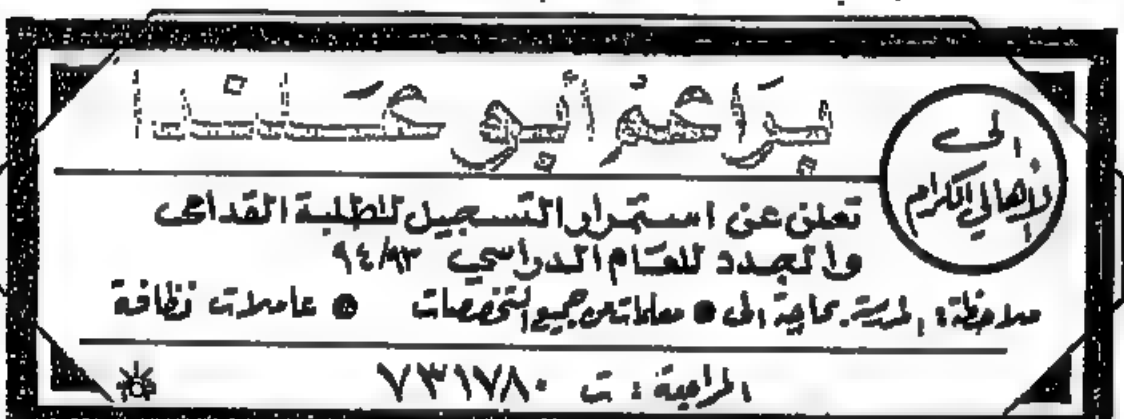 براعم أبو علندا
إلى
الأهالي الكرام
تعلن عن استمرار التسجيل للطلبة القدامى
والجدد للعام الدراسي ٩٤/٩٣
ملاحظة: المدرسة بحاجة الى • معلمات من جميع التخصصات • عاملات نظافة
المراجعة: ت ٧٣١٧٨٠